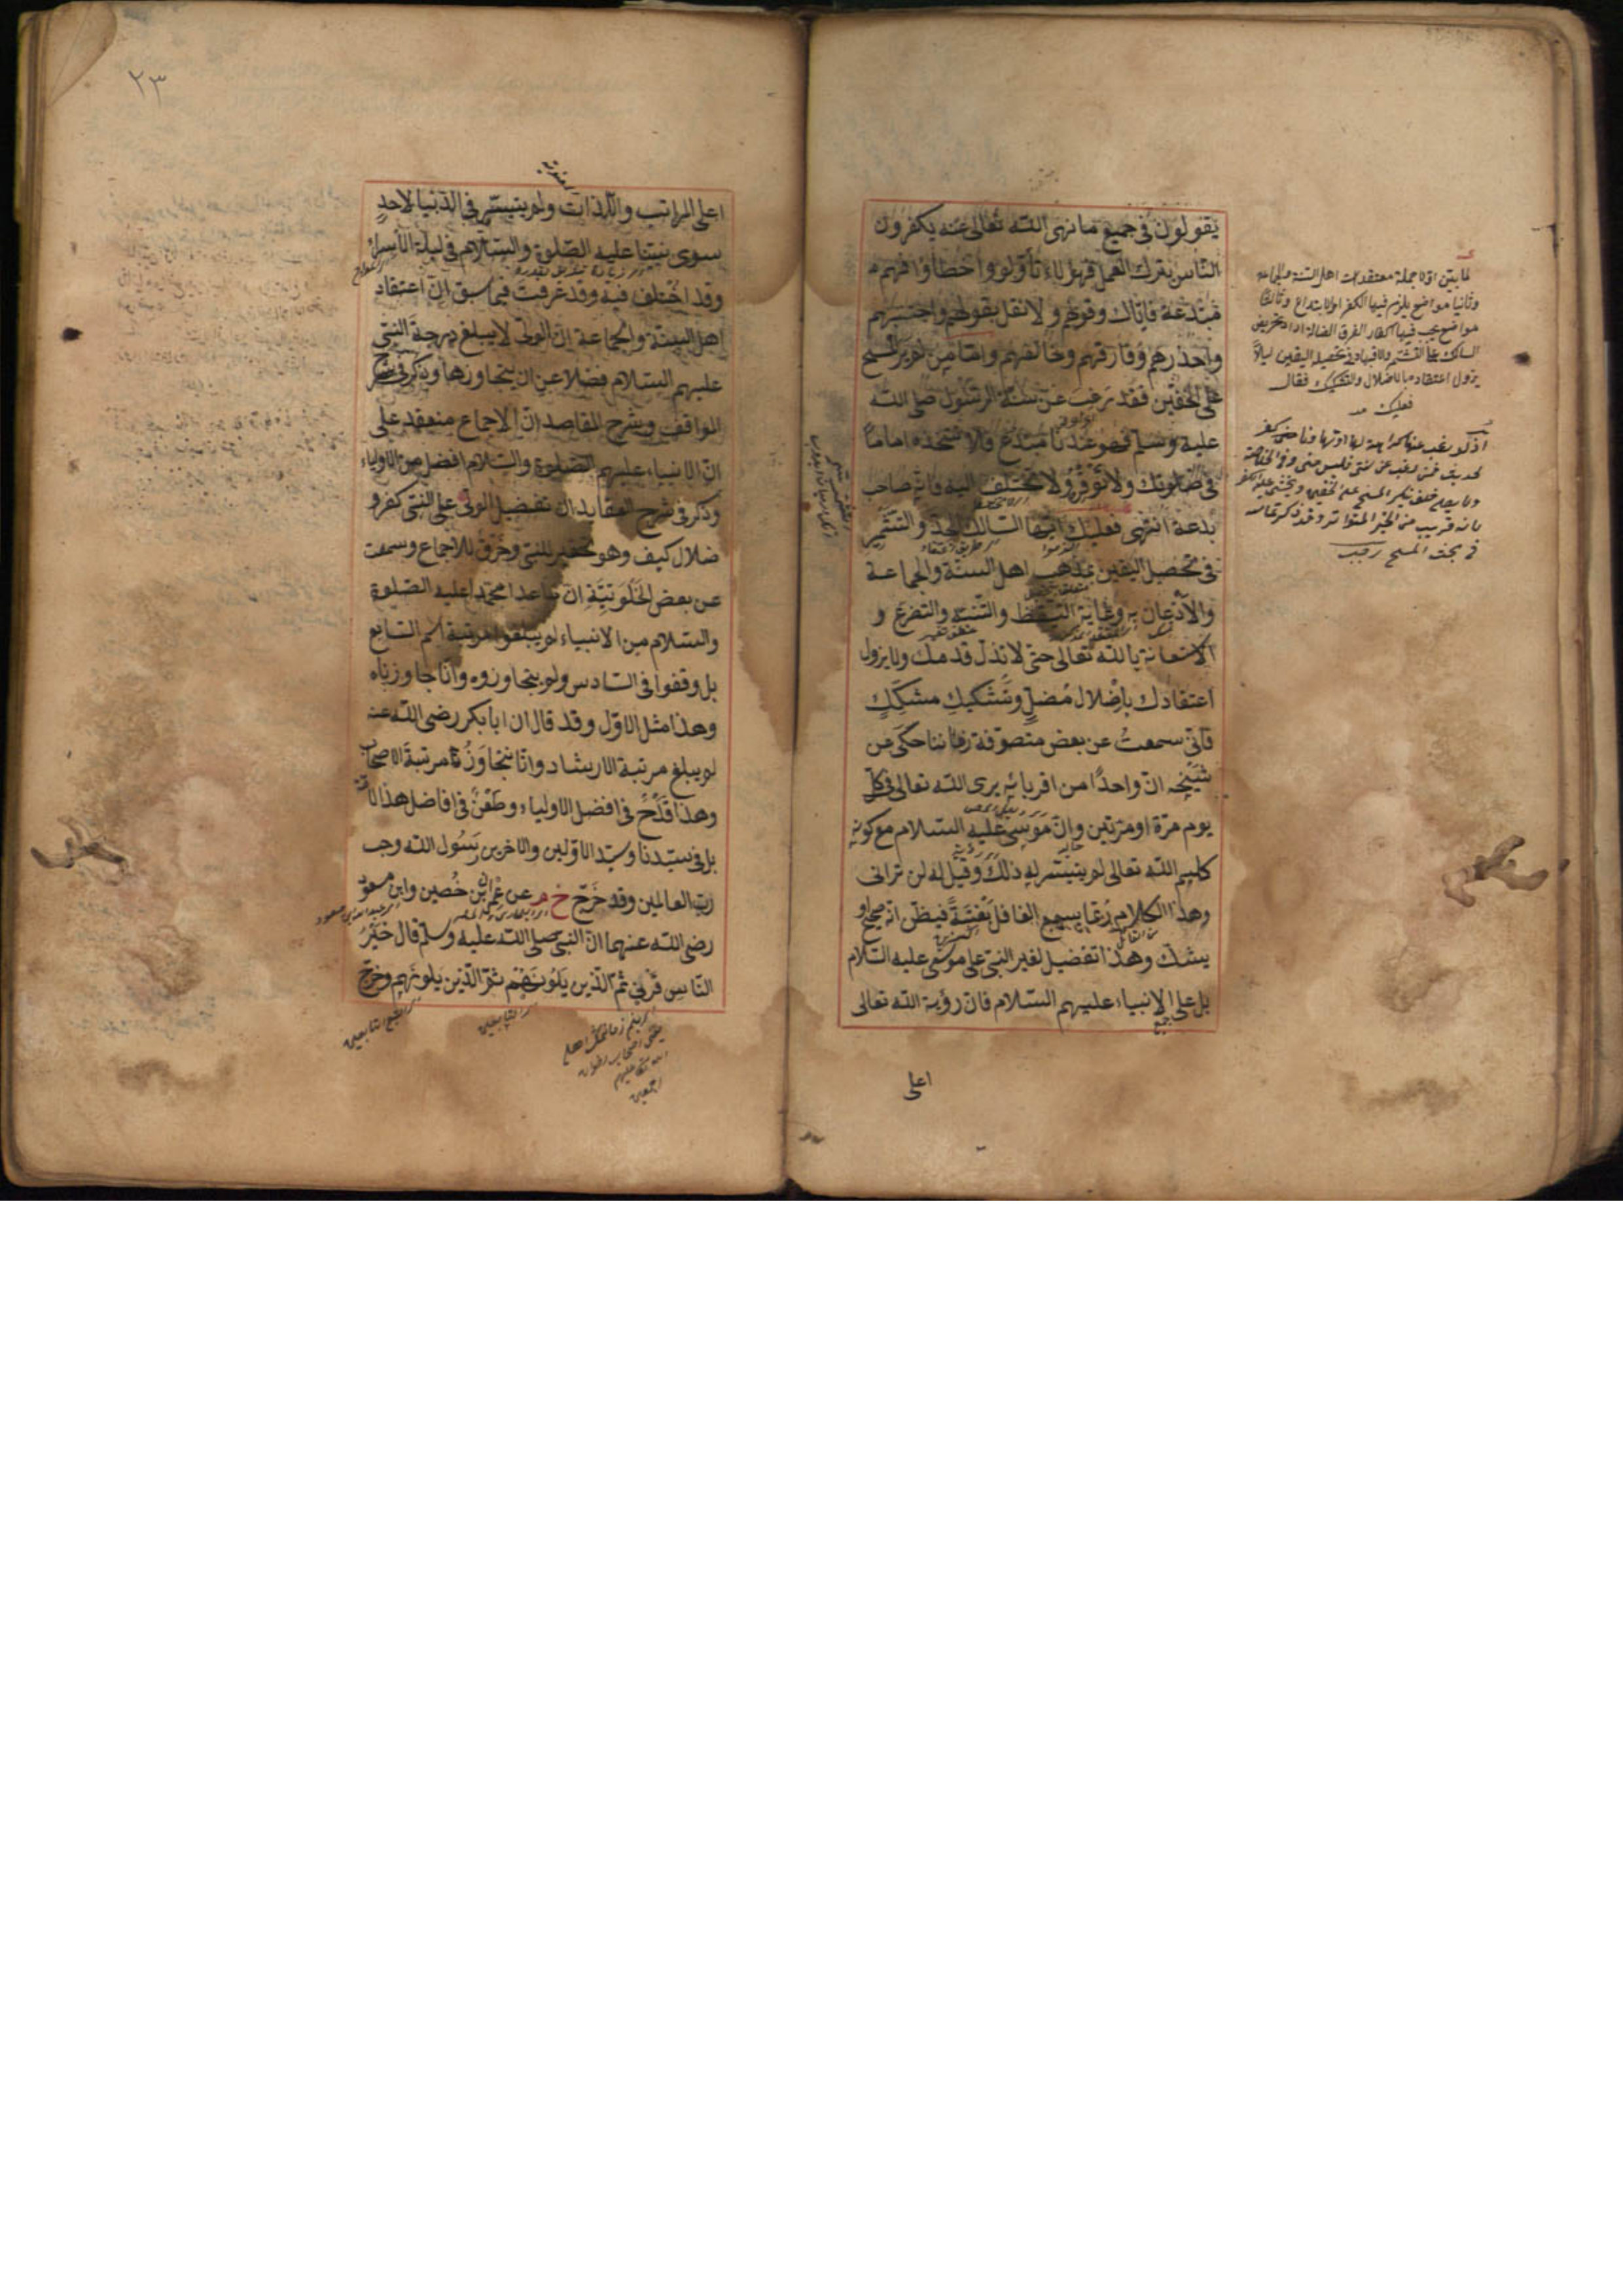 يقولون في جميع ما نهى الله تعالى عنه يكفرون
الناس بترك العمل فهؤلاء تأولوا واخطأوا فهم
مبتدعة فاياك وقولهم ولا تقل بقولهم واجتنبهم
واحذرهم وفارقهم وخالفهم واما من لم ير المسح
على الخفين فقد رغب عن سنة الرسول صلى الله
عليه وسلم فهو عندنا مبتدع فلا تتخذه اماما
في صلوتك ولا توقره ولا تختلف اليه فانه صاحب
بدعة انتهى فعليك ايها السالك الجد والتشمر
في تحصيل اليقين بمذهب اهل السنة والجماعة
والاذعان به وغاية التيقظ والتنبه والتضرع و
الاستعانة بالله تعالى حتى لا تذل قدمك ولا يزول
اعتقادك باضلال مضل وتشكيك مشكك
فاني سمعت عن بعض متصوفة زماننا حكى عن
شيخه ان واحدا من اقربائه يرى الله تعالى في كل
يوم مرة او مرتين وان موسى عليه السلام مع كونه
كليم الله تعالى لم يتيسر له ذلك وقيل له لن تراني
وهذا الكلام ربما يسمع الغافل بغتة فيظن انه صحيح او
يشك وهذا تفضيل لغير النبي على موسى عليه السلام
بل على جميع الانبياء عليهم السلام فان رؤية الله تعالى
اعلى
لما بين اولا جملة معتقدات اهل السنة والجماعة
وثانيا مواضع يلزم فيها الكفر او الابتداع وثالثا
مواضع يجب فيها اكفار الفرق الضالة اراد تحريض
السالك على التشمر والاجتهاد في تحصيل اليقين ليلا
يزول اعتقاده بالاضلال والتشكيك فقال
فعليك
لحديث فمن رغب عن سنتي فليس مني
بانه قريب من الخبر المتواتر وقد ذكرناه
في بحث المسح رجب
٢٣
اعلى المراتب واللذات ولم يتيسر في الدنيا لاحد
سوى نبينا عليه الصلوة والسلام في ليلة الاسراء
وقد اختلف فيه وقد عرفت فيما سبق ان اعتقاد
اهل السنة والجماعة ان الولي لا يبلغ درجة النبي
عليهم السلام فضلا عن ان يتجاوزها وذكر في شرح
المواقف وشرح المقاصد ان الاجماع منعقد على
ان الانبياء عليهم الصلوة والسلام افضل من الاولياء
وذكر في شرح العقايد ان تفضيل الولي على النبي كفر و
ضلال كيف وهو تحقير للنبي وخرق للاجماع وسمعت
عن بعض الخلوتية ان ما عدا محمدا عليه الصلوة
والسلام من الانبياء لم يبلغوا مرتبة اسم السابع
بل وقفوا في السادس ولم يتجاوزوه وانا جاوزناه
وهذا مثل الاول وقد قال ان ابا بكر رضى الله عنه
لم يبلغ مرتبة الارشاد وانا نتجاوز مرتبة الاصحاب
وهذا قدح في افضل الاولياء وطعن في افاضل هذا الامة
بل في سيدنا وسيد الاولين والاخرين رسول الله وحب
رب العالمين وقد خرج خ م عن عمران بن حصين وابن مسعود
رضى الله عنهما ان النبي صلى الله عليه وسلم قال خير
الناس قرني ثم الذين يلونهم ثم الذين يلونهم وخرج